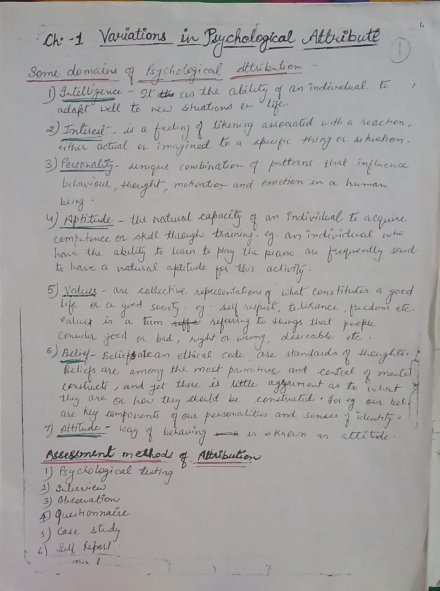 Ch.-1 Variations in Psychological Attribute
1
Some domains of Psychological Attribution -
1) Intelligence - It is as the ability of an individual to
adapt well to new situations in life.
2) Interest - is a feeling of likening associated with a reaction,
either actual or imagined to a specific thing or situation.
3) Personality - unique combination of patterns that influence
behaviour, thought, motivation and emotion in a human
being.
4) Aptitude - the natural capacity of an individual to acquire
competence or skill through training. eg an individual who
have the ability to learn to play the piano are frequently said
to have a natural aptitude for this activity.
5) Values - are collective representations of what constitutes a good
life or a good society. eg - self respect, tolerance, freedom etc.
values is a term referring to things that people
consider good or bad, right or wrong, desirable etc.
6) Belief - Beliefs are an ethical code, are standards of thoughts.
Beliefs are among the most primitive and central of mental
constructs, and yet there is little agreement as to what
they are or how they should be constructed. For eg our beli
are key components of our personalities and senses of identity.
7) Attitude - way of behaving is known as attitude.
Assessment methods of Attribution
1) Psychological testing
2) Interview
3) Observation
4) Questionnaire
5) Case study
6) Self Report